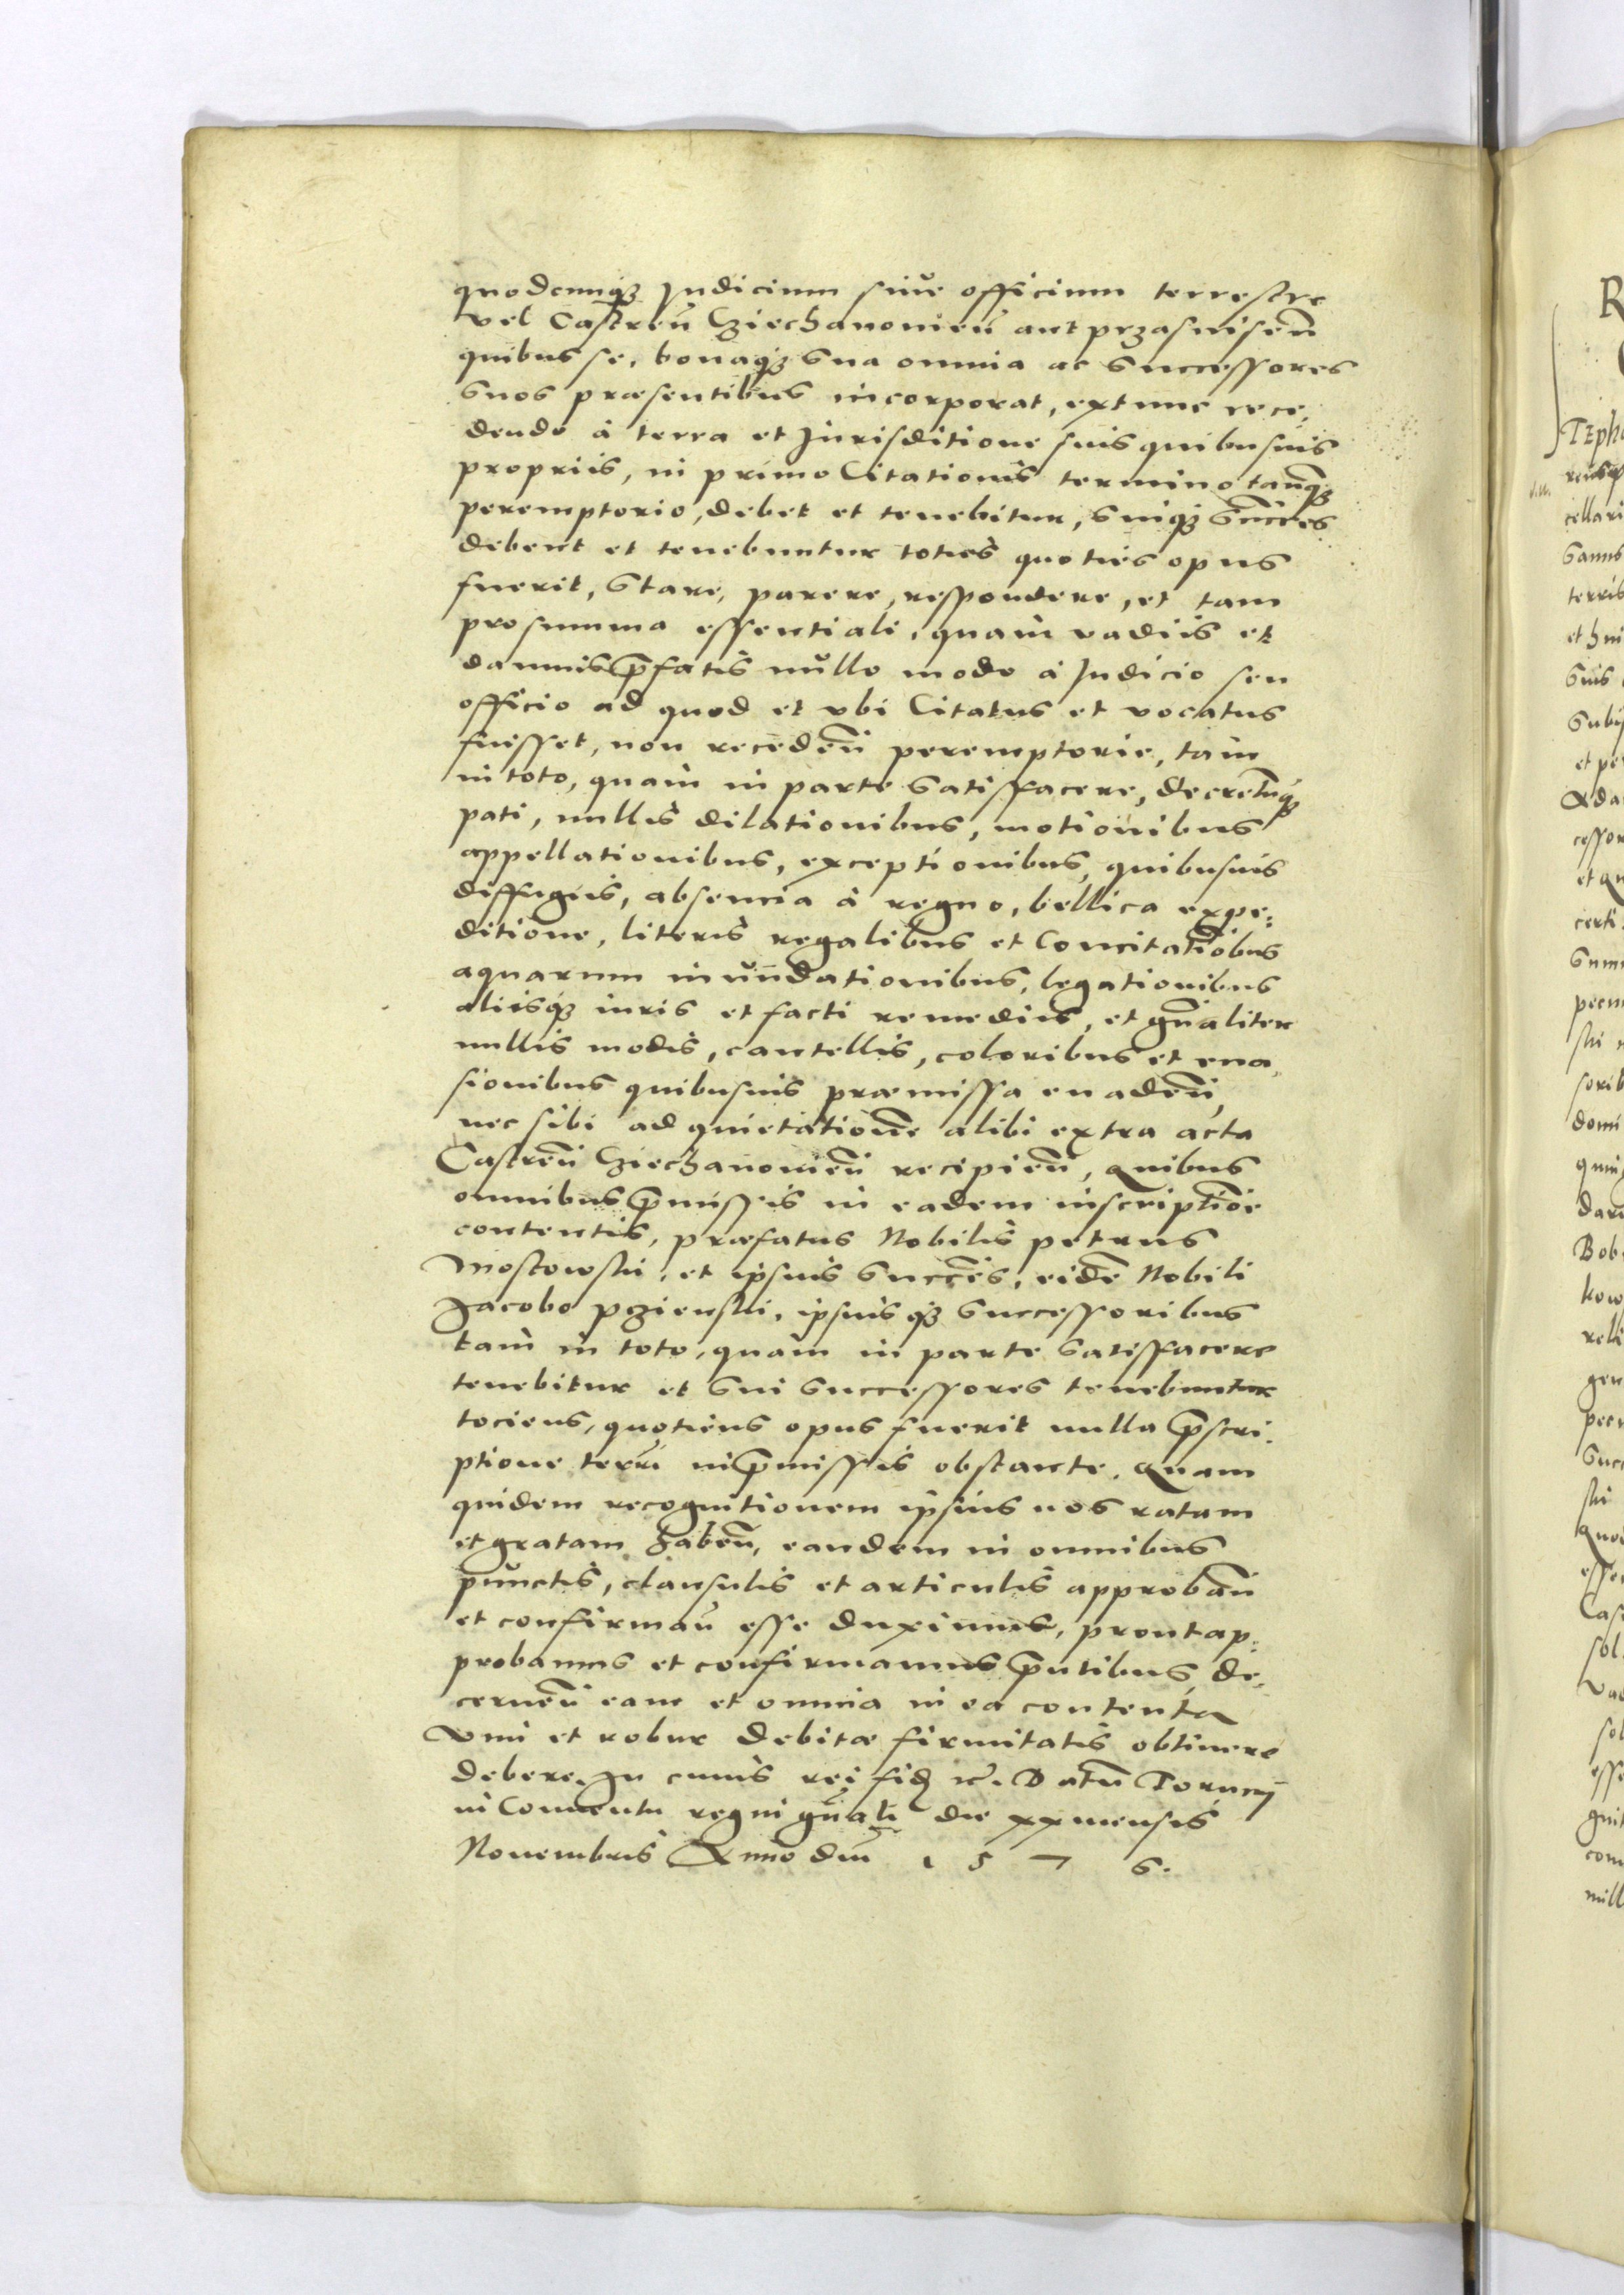 quodcunq₃ Judicium siue officium terrestre
vel Castren̄ Cziechanouien̄ aut przasnisen̄
quibus se, bonaq₃ sua omnia ac successores
suos præsentibus incorporat, extunc rece,
dendo à terra et Jurisditione suis quibusuis
propriis, in primo Citationis termino tanq₃
peremptorio, debet et tenebitur, suiq₃ succ̄res
debent et tenebuntur toties quoties opus
fuerit, stare, parere, respondere, et tam
pro summa essentiali, quam vadiis et
damnis p̄fatis nullo modo à Judicio seu
officio ad quod et vbi Citatus et vocatus
fuisset, non receden̄ peremptorie, tam
in toto, quam in parte satisfacere, decretūq₃
pati, nullis dilationibus, motionibus
appellationibus, exceptionibus, quibusuis
diffugiis, absencia à regno, bellica expe:
ditione, literis regalibus et Concitatio͞bus
aquarum inundationibus, legationibus
aliisq₃ iuris et facti remediis, et gn̄aliter
nullis modis, cautellis, coloribus et eua,
sionibus quibusuis præmissa euaden̄,
nec sibi ad quietatione͞ alibi extra acta
Castren̄ Cziechanouien̄ recipien̄, quibus
omnibus p̄missis in eadem inscriptio͞e
contentis, præfatus Nobilis petrus
Mostowski, et ipsius succēs, eidē Nobili
Jacobo pzienski, ipsius q₃ successoribus
tam in toto, quam in parte satisfacere
tenebitur et sui successores tenebuntur
tociens, quotiens opus fuerit nulla p̄scri,
ptione terrī in p̄missis obstante. Quam
quidem recognitionem ipsius nos ratam
et gratam haben̄, eandem in omnibus
punctis, clausulis et articulis approban̄
et confirman̄ esse duximus, prout ap:
probamus et confirmamus p̄ntibus, de,
cernen̄ eam et omnia in ea contenta
vim et robur debitæ firmitatis obtinere
debere. In cuius rei fid̄ ꝛc̄. Datū Torunij
in Conuentu regni gn̄ali die xx mensis
Nouembris Anno dn̄i 1 5 7 6.